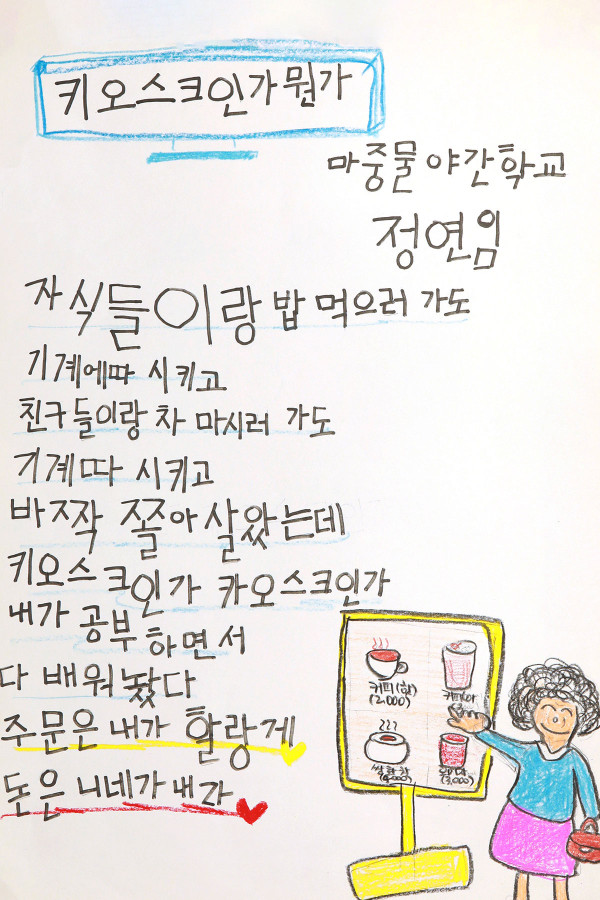 키오스크인가뭔가
마중물 야간학교
정연임
자식들이랑 밥 먹으러 가도
기계에따 시키고
친구들이랑 차 마시러 가도
기계따 시키고
바짝 쫄아살았는데
키오스크인가 카오스크인가
내가 공부하면서
다 배워놨다
주문은 내가 할랑게
돈은 니네가 내라
커피(핫)
(2,000)
쌍화차
(4,000)
(3,000)